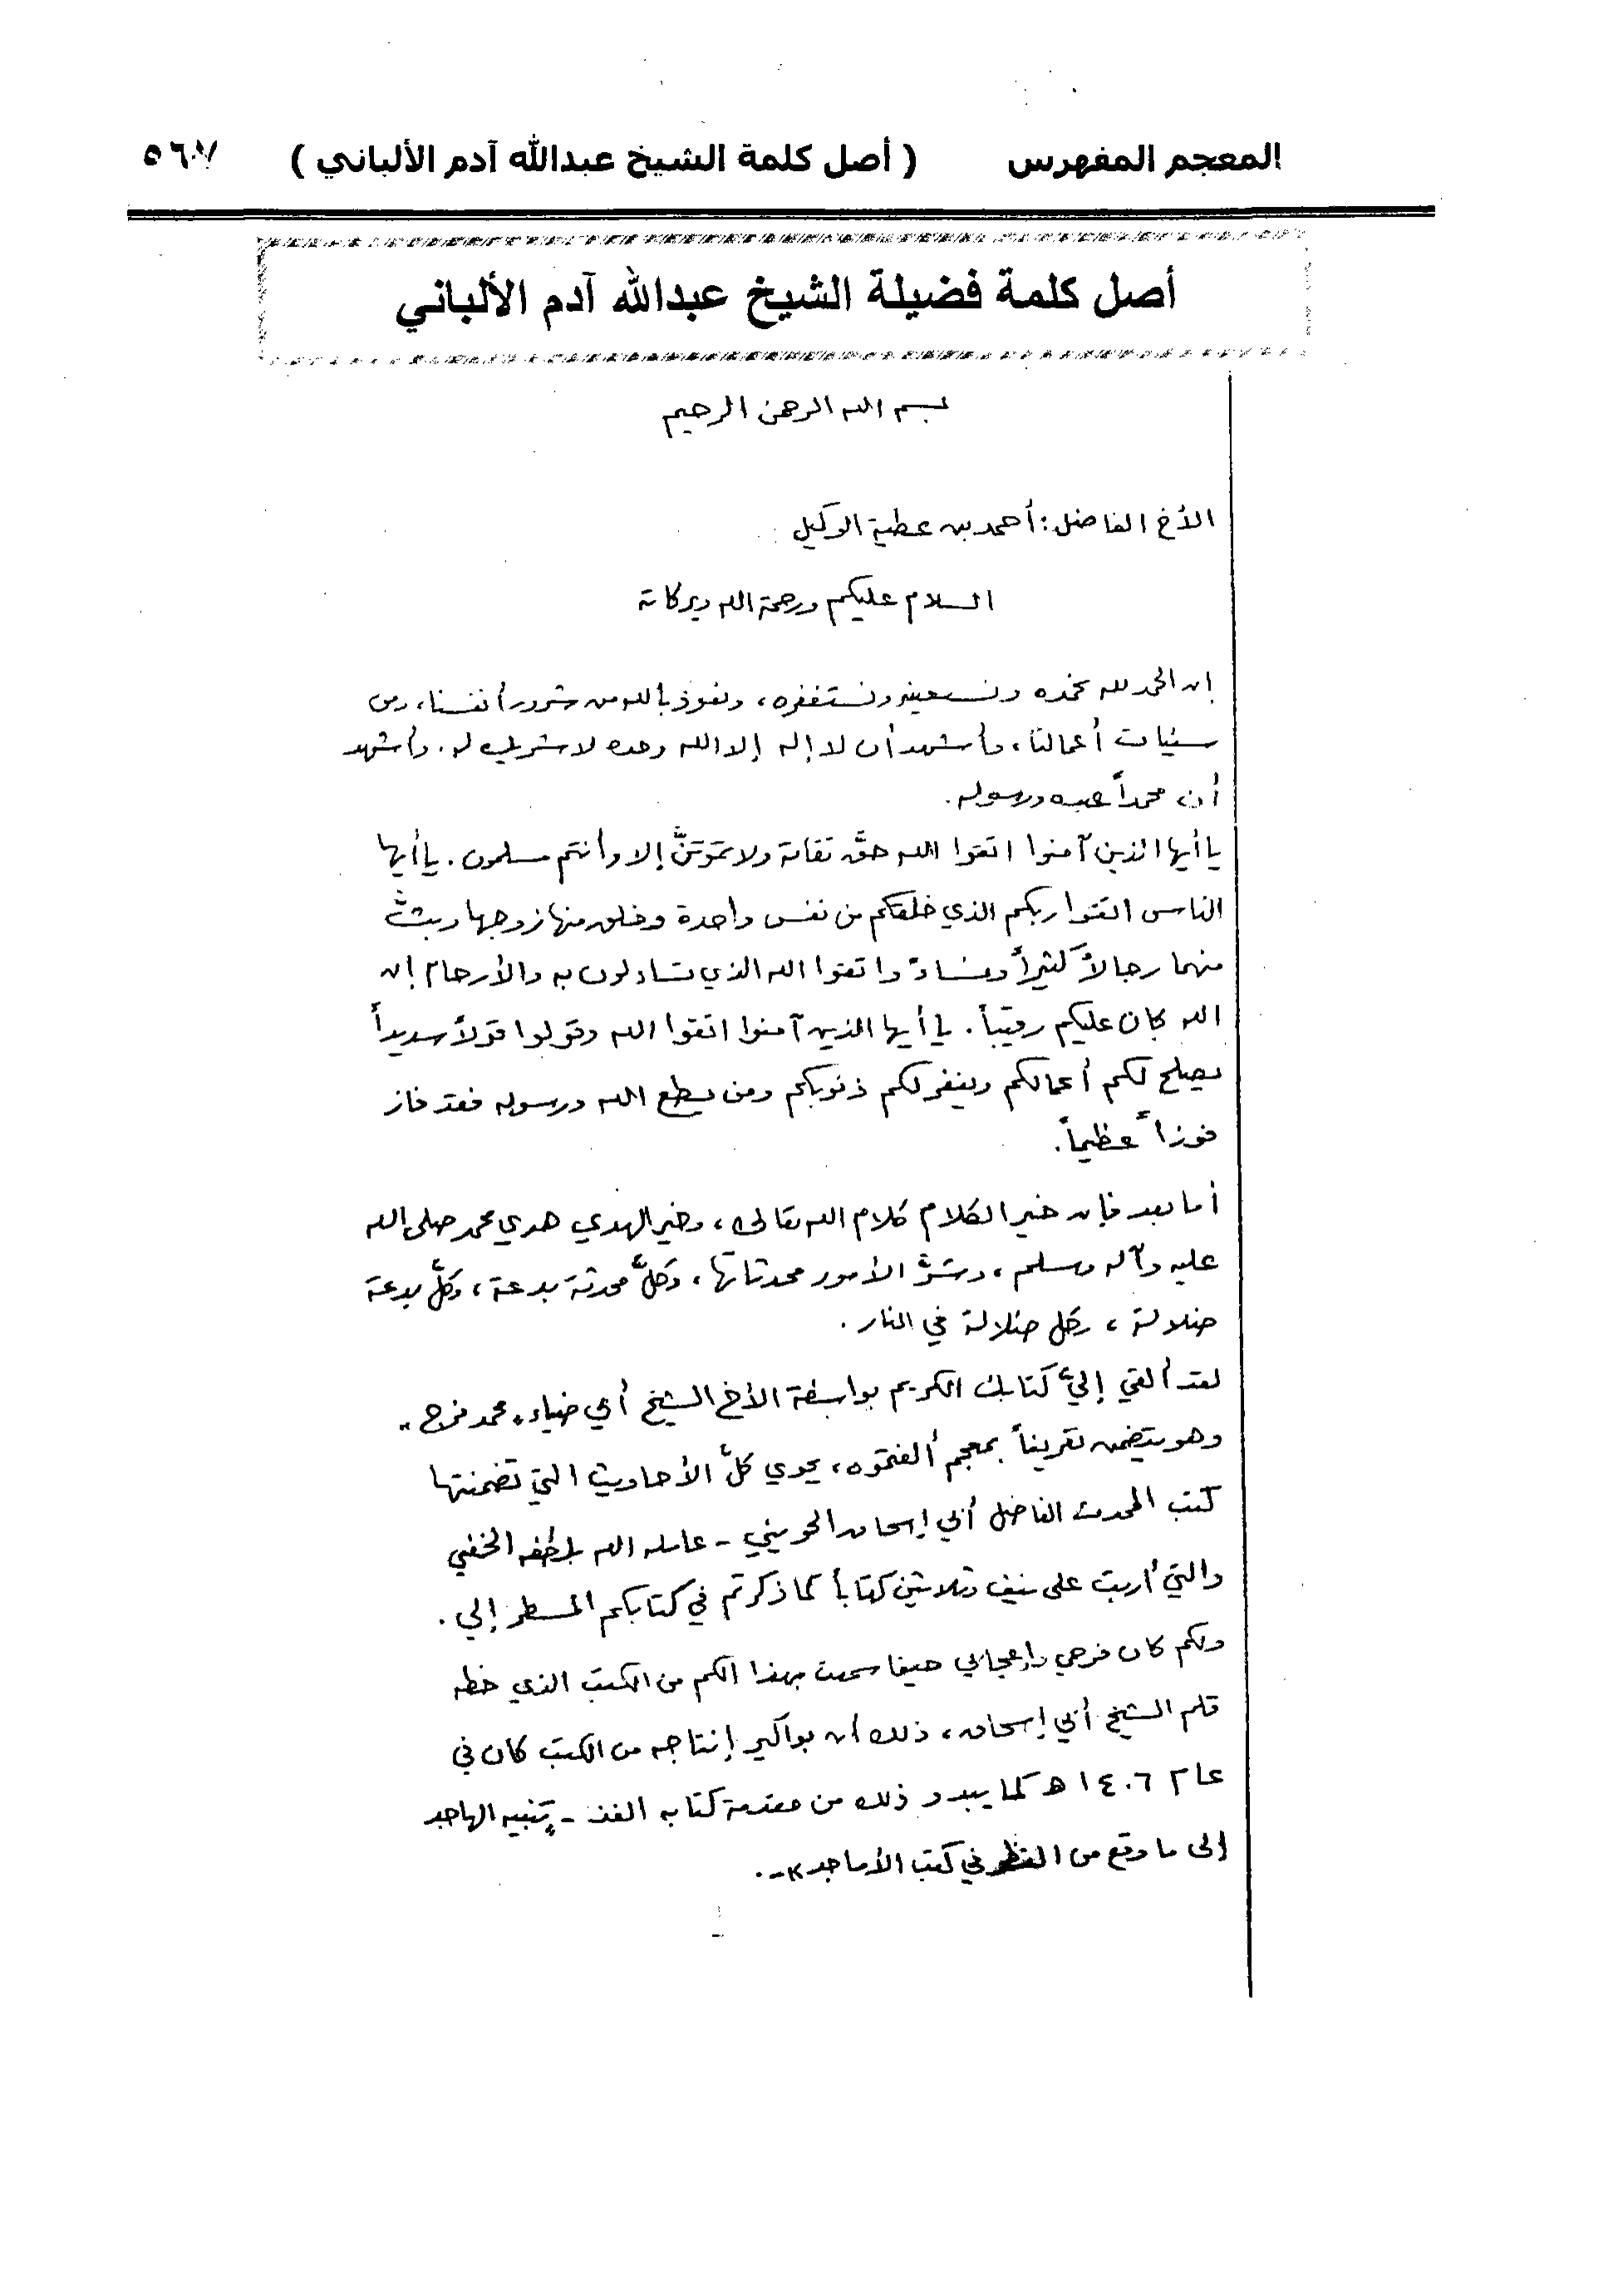 المعجم المفهرس ( أصل كلمة الشيخ عبدالله آدم الألباني ) ٥٦٠٧
أصل كلمة فضيلة الشيخ عبدالله آدم الألباني
بسم الله الرحمن الرحيم
الأخ الفاضل: أحمد بن عطية الوكيل
السلام عليكم ورحمة الله وبركاته
إن الحمد لله نحمده ونستعينه ونستغفره، ونعوذ بالله من شرور أنفسنا، ومن
سيئات أعمالنا، وأشهد أن لا إله إلا الله وحده لا شريك له. وأشهد
أن محمداً عبده ورسوله.
يا أيها الذين آمنوا اتقوا الله حقَّ تقاته ولا تموتنَّ إلا وأنتم مسلمون. يا أيها
الناس اتقوا ربكم الذي خلقكم من نفس واحدة وخلق منها زوجها وبثَّ
منهما رجالاً كثيراً ونساءً واتقوا الله الذي تساءلون به والأرحام إن
الله كان عليكم رقيباً. يا أيها الذين آمنوا اتقوا الله وقولوا قولاً سديداً
يصلح لكم أعمالكم ويغفر لكم ذنوبكم ومن يطع الله ورسوله فقد فاز
فوزاً عظيماً.
أما بعد فإن خير الكلام كلام الله تعالى، وخير الهدي هدي محمد صلى الله
عليه وآله وسلم، وشرَّ الأمور محدثاتها، وكلَّ محدثة بدعة، وكلَّ بدعة
ضلالة، وكل ضلالة في النار.
لقد ألقي إليَّ كتابك الكريم بواسطة الأخ الشيخ أبي ضياء "محمد فرج"
وهو يتضمن تعريفاً بمعجم ألفتموه، يحوي كلَّ الأحاديث التي تضمنتها
كتب المحدث الفاضل أبي إسحاق الحويني - عامله الله بلطفه الخفي
والتي أربت على نيف وثلاثين كتاباً كما ذكرتم في كتابكم المسطر إلي.
ولكم كان فرحي وإعجابي حينما سمعت بهذا الكم من الكتب الذي خطه
قلم الشيخ أبي إسحاق، ذلك أن بواكير إنتاجه من الكتب كان في
عام ١٤٠٦ هـ كما يبدو ذلك من مقدمة كتابه الفذ - تنبيه الهاجد
إلى ما وقع من النظر في كتب الأماجد» -.